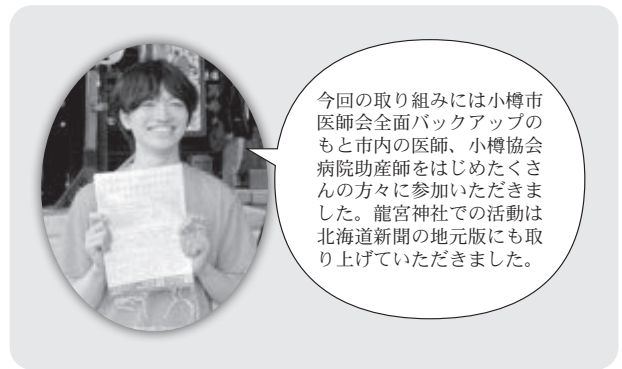 今回の取り組みには小樽市
医師会全面バックアップの
もと市内の医師、小樽協会
病院助産師をはじめたくさ
んの方々に参加いただきま
した。龍宮神社での活動は
北海道新聞の地元版にも取
り上げていただきました。